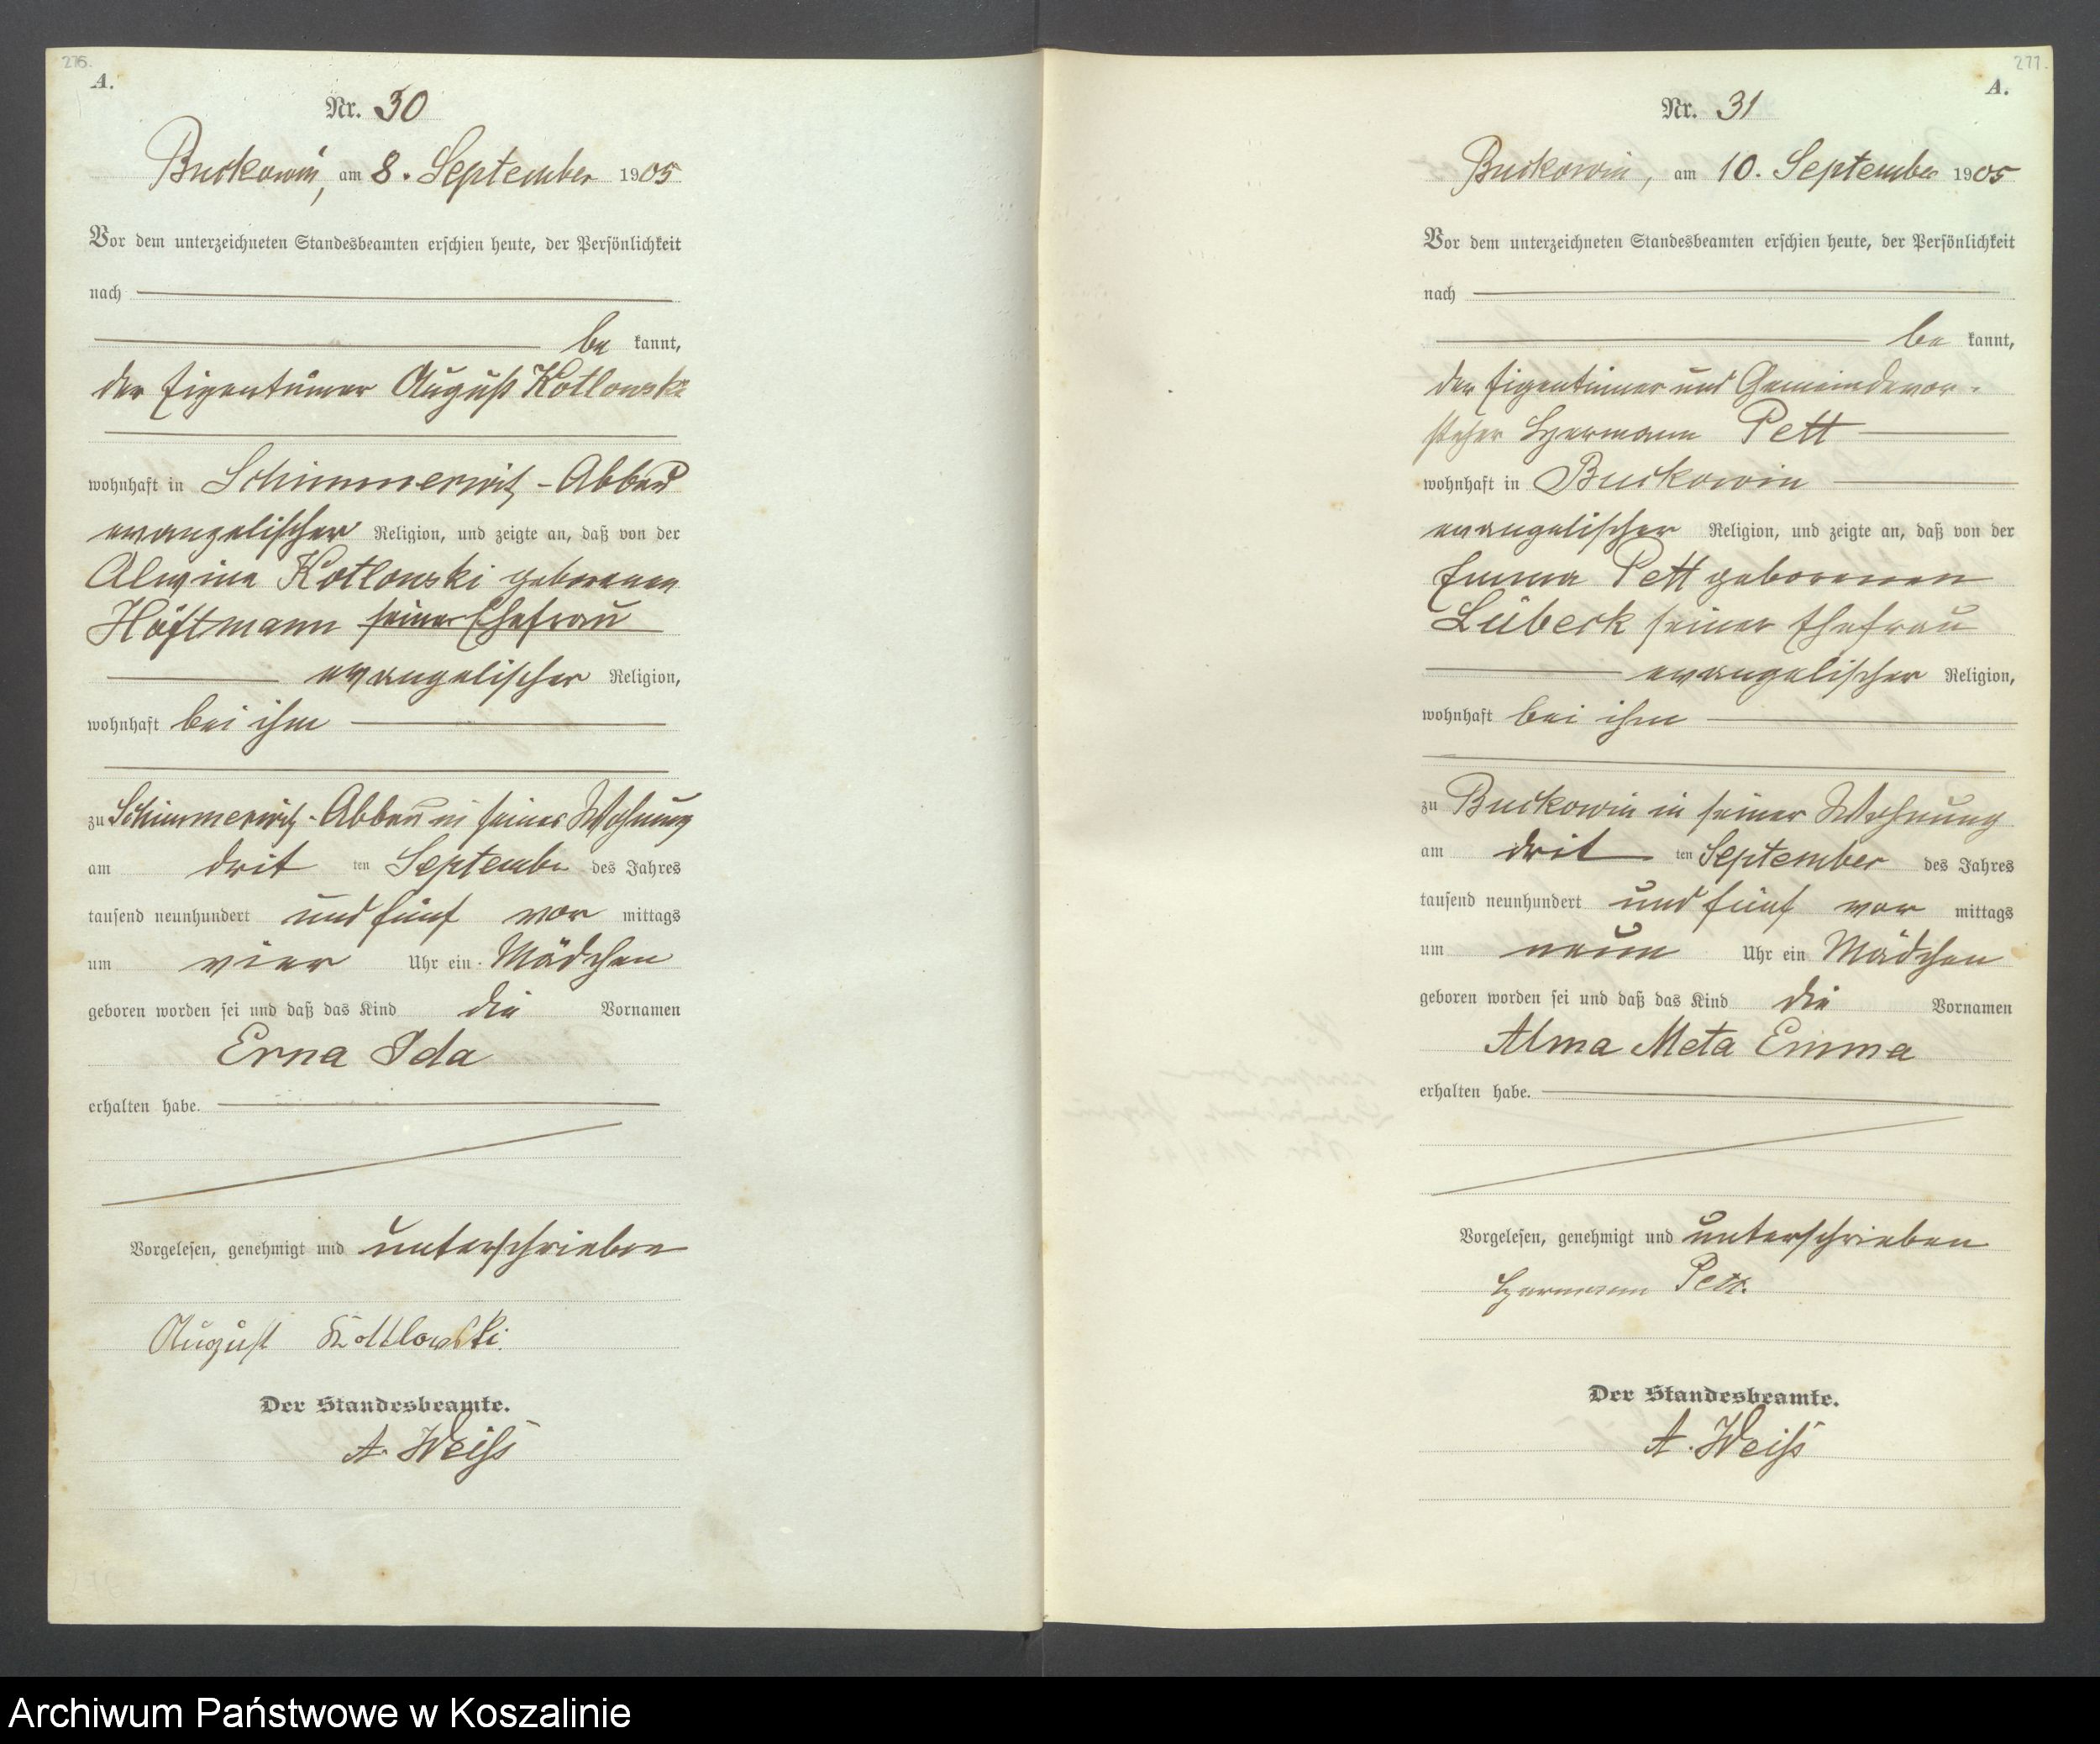 276.
A.
Nr. 30
Buckowin, am 8. September 1905
Vor dem unterzeichneten Standesbeamten erschien heute, der Persönlichkeit
nach
be kannt,
der Eigentümer August Kotlowski
wohnhaft in Schimmerwitz-Abbau
evangelischer Religion, und zeigte an, daß von der
Alwine Kotlowski geborenen
Höftmann seiner Ehefrau
evangelischer Religion,
wohnhaft bei ihm
zu Schimmerwitz-Abbau in seiner Wohnung
am dritten September des Jahres
tausend neunhundert und fünf vor mittags
um vier Uhr ein Mädchen
geboren worden sei und daß das Kind die Vornamen
Erna Ida
erhalten habe.
Vorgelesen, genehmigt und unterschrieben
August Kottlowski.
Der Standesbeamte.
A. Weiß
277.
A.
Nr. 31
Buckowin, am 10. September 1905
Vor dem unterzeichneten Standesbeamten erschien heute, der Persönlichkeit
nach
be kannt,
der Eigentümer und Gemeindevor-
steher Hermann Pett
wohnhaft in Buckowin
evangelischer Religion, und zeigte an, daß von der
Emma Pett geborenen
Lübeck seiner Ehefrau
evangelischer Religion,
wohnhaft bei ihm
zu Buckowin in seiner Wohnung
am dritten September des Jahres
tausend neunhundert und fünf vor mittags
um neun Uhr ein Mädchen
geboren worden sei und daß das Kind die Vornamen
Alma Meta Emma
erhalten habe.
Vorgelesen, genehmigt und unterschrieben
Hermann Pett.
Der Standesbeamte.
A. Weiß
Archiwum Państwowe w Koszalinie